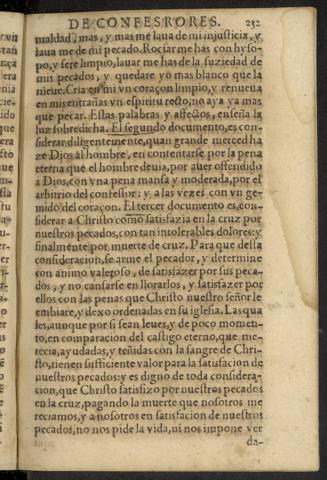 DE CONFESRORES. 232
maldad, mas, y mas me laua de mi injusticia, y
laua me de mi pecado. Rociar me has con hyso-
po, y sere limpio, lauar me has de la suziedad de
mis pecados, y quedare yo mas blanco que la
nieue. Cria en mi vn coraçon limpio, y renueua
en mis entrañas vn espiritu recto, no aya ya mas
que pecar. Estas palabras y affectos, enseña la
luz sobredicha. El segundo documento, es con-
siderar diligentemente, quan grande merced ha
ze Dios al hombre, en contentarse por la pena
eterna que el hombre deuia, por auer offendido
a Dios, con vna pena mansa y moderada, por el
arbitrio del confessor: y a las vezes con vn ge-
mido del coraçon. El tercer documento es, con-
siderar a Christo como satisfazia en la cruz por
nuestros pecados, con tan intolerables dolores: y
finalmente por muerte de cruz. Para que desta
consideracion, se arme el pecador, y determine
con animo valeroso, de satisfazer por sus peca-
dos, y no cansarse en llorarlos, y satisfazer por
ellos con las penas que Christo nuestro señor le
embiare, y dexo ordenadas en su iglesia. Las qua
les, aunque por si sean leues, y de poco momen-
to, en comparacion del castigo eterno, que me-
recia, ayudadas, y teñidas con la sangre de Chri-
sto, tienen sufficiente valor para la satisfacion de
nuestros pecados: y es digno de toda considera-
cion, que Christo satisfizo por nuestros pecados
en la cruz, pagando la muerte que nosotros me
reciamos, y a nosotros en satisfacion de nuestros
pecados, no nos pide la vida, ni nos impone ver
da-